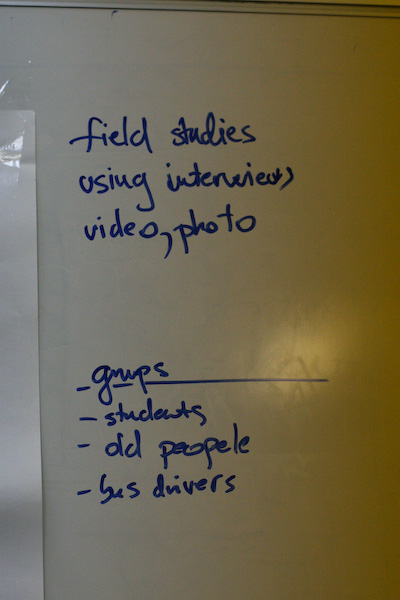 field studies
using interviews,
video, photo
- grups
- students
- old peopele
- bus drivers